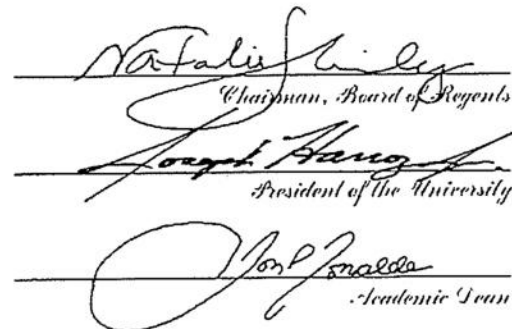 Natalie Shirley
Chairman, Board of Regents
Joseph Harroz, Jr.
President of the University
Academic Dean